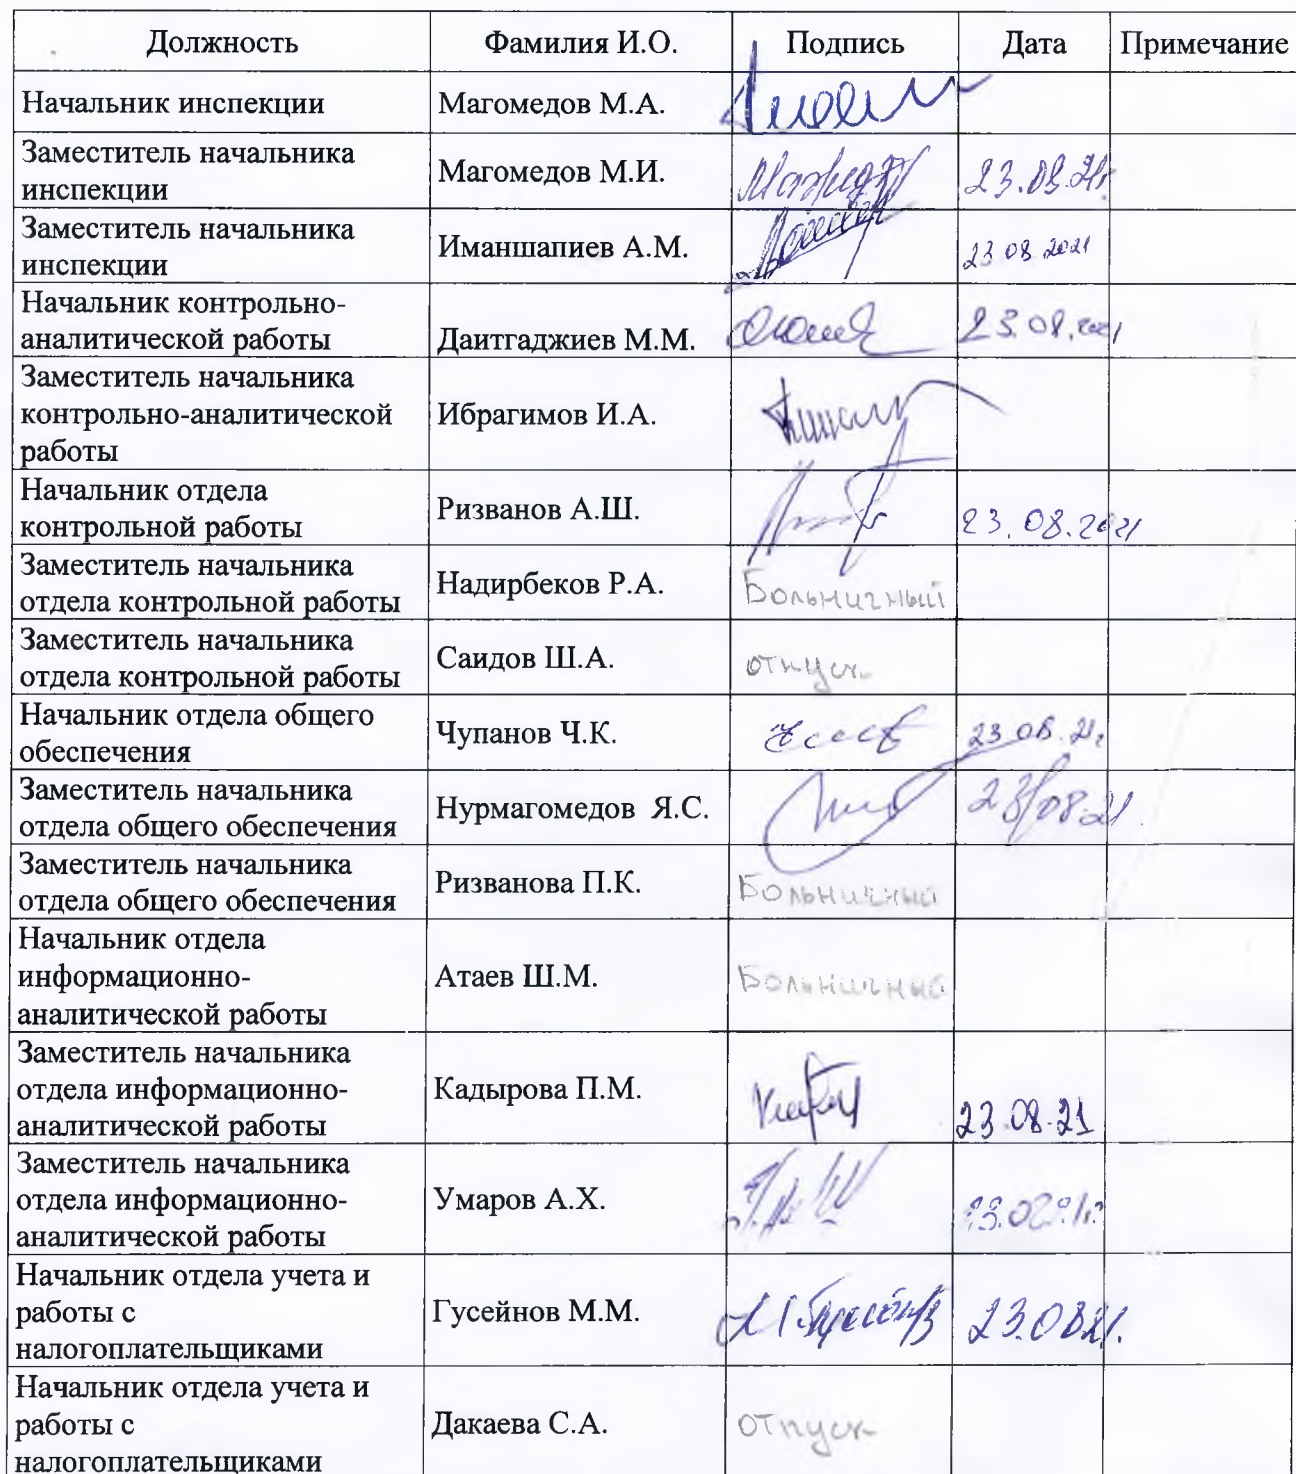 Должность Фамилия И.О. Подпись Дата Примечание
Начальник инспекции Магомедов М.А.
Заместитель начальника
инспекции Магомедов М.И. 23.08.21г
Заместитель начальника
инспекции Иманшапиев А.М. 23 08 2021
Начальник контрольно-
аналитической работы Даитгаджиев М.М. 23.08.2021
Заместитель начальника
контрольно-аналитической Ибрагимов И.А.
работы
Начальник отдела
контрольной работы Ризванов А.Ш. 23.08.2021
Заместитель начальника
отдела контрольной работы Надирбеков Р.А. Больничный
Заместитель начальника
отдела контрольной работы Саидов Ш.А. отпуск
Начальник отдела общего
обеспечения Чупанов Ч.К. 23.08.21г
Заместитель начальника
отдела общего обеспечения Нурмагомедов Я.С. 23/08.21
Заместитель начальника
отдела общего обеспечения Ризванова П.К. Больничный
Начальник отдела
информационно- Атаев Ш.М. Больничный
аналитической работы
Заместитель начальника
отдела информационно- Кадырова П.М.
аналитической работы 23.08.21
Заместитель начальника
отдела информационно- Умаров А.Х.
аналитической работы
Начальник отдела учета и
работы с Гусейнов М.М. 23.0821.
налогоплательщиками
Начальник отдела учета и
работы с Дакаева С.А. отпуск
налогоплательщиками